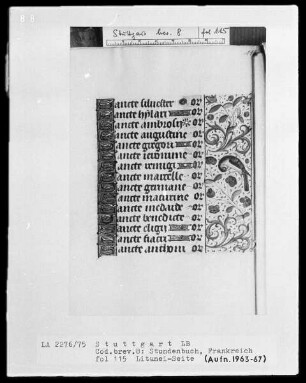 Stuttgart brev. 8 fol 115
Sancte silvester or
Sancte hylari or
Sancte ambrosi or
Sancte augustine or
Sancte gregori or
Sancte ieronime or
Sancte remigi or
Sancte marcelle or
Sancte germane or
Sancte maturine or
Sancte medarde or
Sancte benedicte or
Sancte eligii or
Sancte fiacri or
Sancte anthoni or
LA 2276/75 Stuttgart LB
Cod.brev.8: Stundenbuch, Frankreich
fol 115 Litanei-Seite (Aufn. 1963-67)